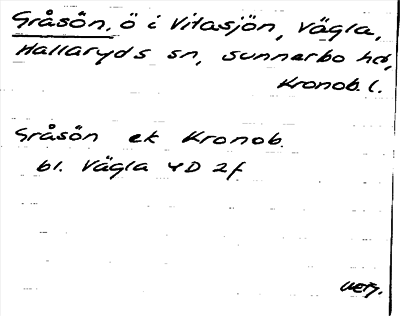 Gråsön, ö i Vitasjön, Vägla,
Hallaryds sn, Sunnerbo hd,
Kronob. l.
Gråsön ek Kronob.
bl. Vägla 4D 2f